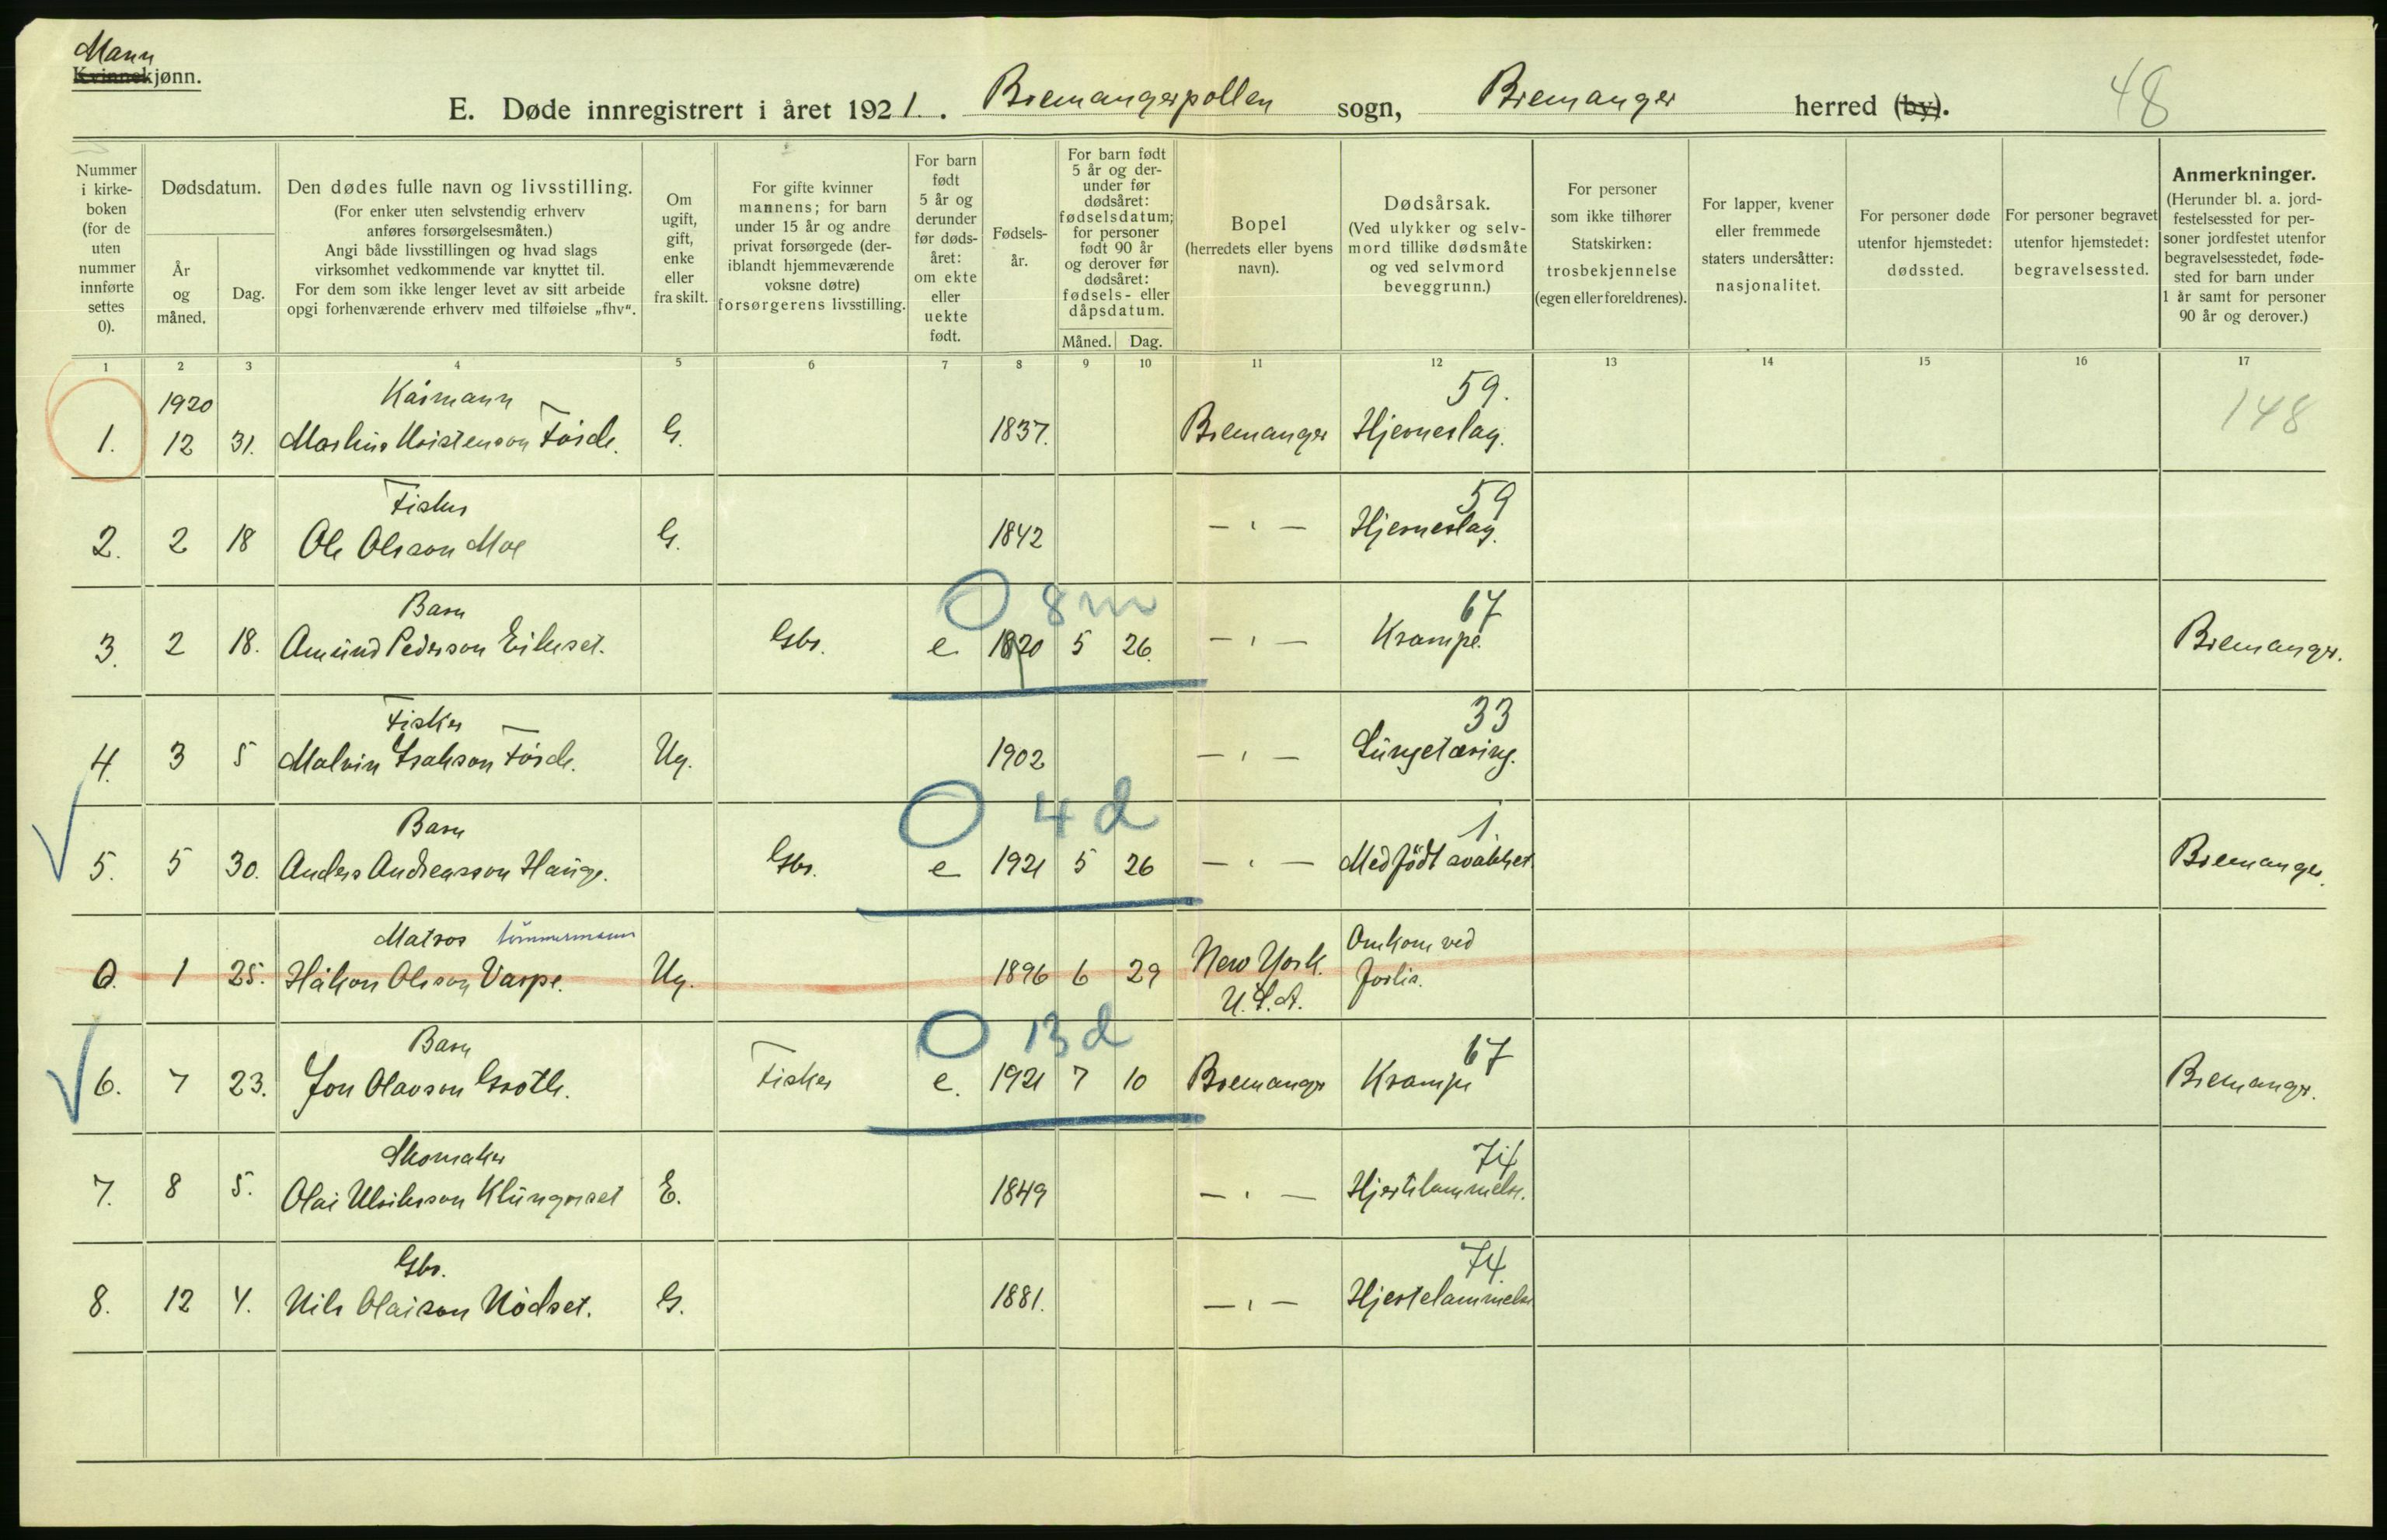 Mann
Kvinnekjønn.
E. Døde innregistrert i året 1921. Bremangerpollen sogn, Bremanger herred (by). 48
Nummer i kirkeboken (for de uten nummer innførte settes 0).
Dødsdatum.
År og måned.
Dag.
Den dødes fulle navn og livsstilling.
(For enker uten selvstendig erhverv anføres forsørgelsesmåten.)
Angi både livsstillingen og hvad slags virksomhet vedkommende var knyttet til.
For dem som ikke lenger levet av sitt arbeide opgi forhenværende erhverv med tilføielse „fhv“.
Om ugift, gift, enke eller fraskilt.
For gifte kvinner mannens; for barn under 15 år og andre privat forsørgede (deriblandt hjemmeværende voksne døtre) forsørgerens livsstilling.
For barn født 5 år og derunder før dødsåret: om ekte eller uekte født.
Fødselsår.
For barn født 5 år og derunder før dødsåret: fødselsdatum; for personer født 90 år og derover før dødsåret: fødsels- eller dåpsdatum.
Måned. Dag.
Bopel
(herredets eller byens navn).
Dødsårsak.
(Ved ulykker og selvmord tillike dødsmåte og ved selvmord beveggrunn.)
For personer som ikke tilhører Statskirken: trosbekjennelse (egen eller foreldrenes).
For lapper, kvener eller fremmede staters undersåtter: nasjonalitet.
For personer døde utenfor hjemstedet: dødssted.
For personer begravet utenfor hjemstedet: begravelsessted.
Anmerkninger.
(Herunder bl. a. jordfestelsessted for personer jordfestet utenfor begravelsesstedet, fødested for barn under 1 år samt for personer 90 år og derover.)
1 2 3 4 5 6 7 8 9 10 11 12 13 14 15 16 17
1920 Kårmann 59.
1. 12 31. Martins Kristenson Førde. G. 1837. Bremanger Hjerneslag. 148
Fisker 59
2. 2 18 Ole Oleson Moe G. 1842 — " — Hjerneslag.
Barn O 8m 67
3. 2 18. Amund Pederson Eikeset. Gbr. e 1920 5 26. — " — Krampe. Bremanger.
Fisker 33
4. 3 5 Malvin Isakson Førde. Ug. 1902 — " — Lungetæring.
Barn O 4d 1.
5. 5 30. Anders Andreasson Hauge. Gbr. e 1921 5 26 — " — Medfødt svakhet. Bremanger.
Matros tømmermann Omkom ved
0. 1 25. Håkon Oleson Varpe. Ug. 1896 6 29 New York. forlis.
U.S.A.
Barn O 13d 67
6. 7 23. Jon Olavson Grotle. Fisker e. 1921 7 10 Bremanger Krampe Bremanger.
Skomaker 74
7. 8 5. Olai Ulrikson Klungreset E. 1849 — " — Hjertelammelse.
Gbr. 74.
8. 12 4. Nils Olaison Nødset. G. 1881. — " — Hjertelammelse